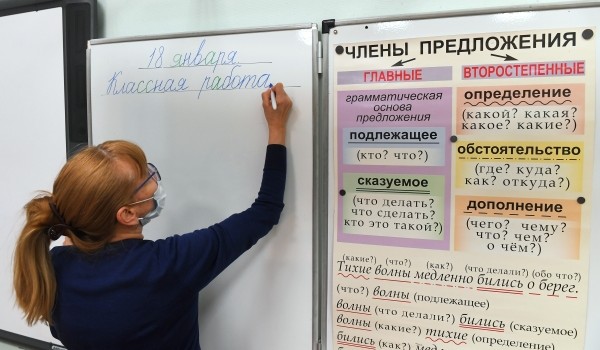 18 января
Классная работа
ЧЛЕНЫ ПРЕДЛОЖЕНИЯ
ГЛАВНЫЕ
ВТОРОСТЕПЕННЫЕ
грамматическая
основа
предложения
подлежащее
(кто? что?)
сказуемое
(что делать?
что сделать?
кто это такой?)
определение
(какой? какая?
какое? какие?)
обстоятельство
(где? куда?
как? откуда?)
дополнение
(чего? чему?
что? чем?
о чём?)
(какие?) (что?) (как?) (что делали?) (обо что?)
Тихие волны медленно бились о берег.
(что?) волны (подлежащее)
волны (что делали?) бились (сказуемое)
волны (какие?) тихие (определение)
бились (как?)